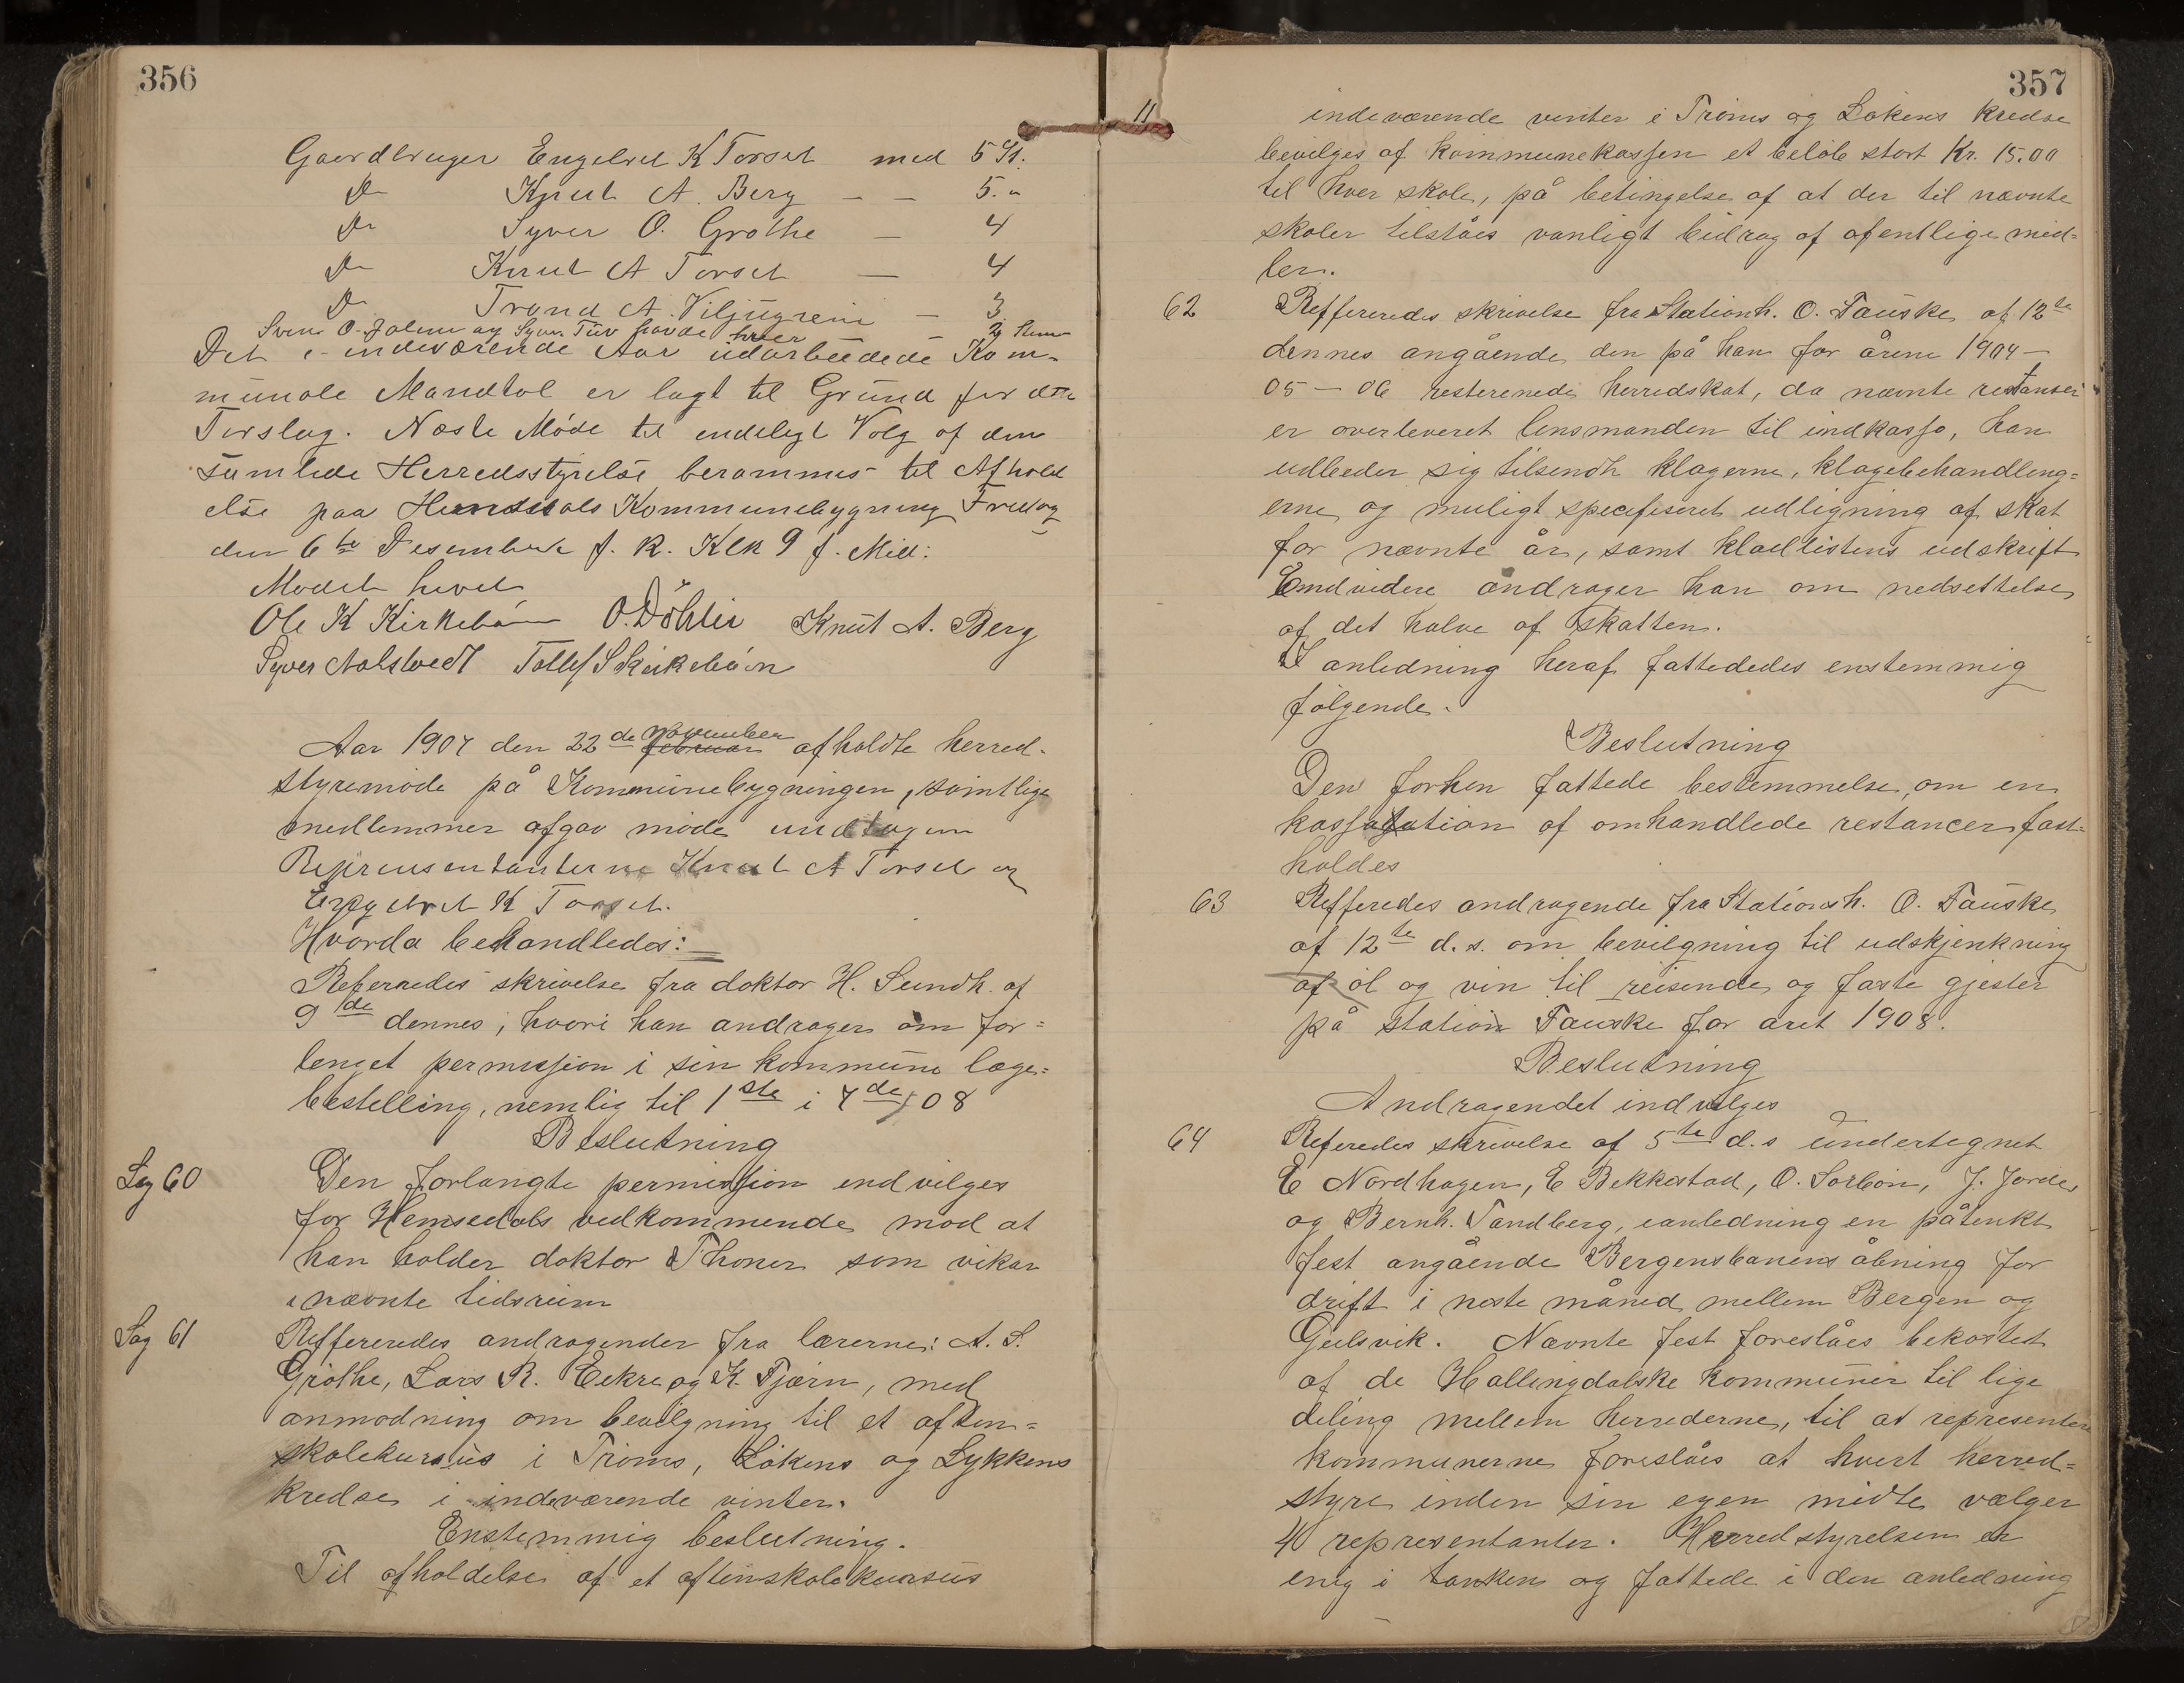 356
Gaardbruger Engebret K Torset med 5 St.
Do Knut A. Berg — — 5. "
Do Syver O. Grøthe — 4
Do Knut A Torset — 4
Do Trond A. Viljugrein — 3
Svein O. Jolum og Syver Tuv havde hver 2 Stem
Det i indeværende Aar udarbeidede Kom-
munale Mandtal er lagt til Grund for dette
Forslag. Næste Møde til endeligt Valg af den
samlede Herredsstyrelse berammes til Afhold
else paa Hemsedals Kommunebygning Fredag
den 6te Desember f. k. Klk 9 f. Mid:
Mødet hævet
Ole K Kirkebøen O. Döhlir Knut A. Berg
Syver Aalstvedt Tollef S Kirkebøen
Aar 1907 den 22de februar november afholdte herred-
styremøde på Kommunebygningen, samtlige
medlemmer afgav møde undtagen
Representanterne Knut A Torset og
Engebret K Torset.
Hvorda behandledes:
Refereredes skrivelse fra doktor H. Sundh. af
9de dennes, hvori han andrager om for=
lenget permission i sin kommune læge=
bestelling, nemlig til 1ste i 7de 08
Beslutning
Sag 60 Den forlangte permission indvilges
for Hemsedals vedkommende mod at
han holder doktor Thoner som vikar
i nævnte tidsrum
Sag 61 Reffereredes andragender fra lærerne: A. S.
Grøthe, Lars R. Eekre og K. Tjærn, med
anmodning om bevilgning til et aften=
skolekursus i Trøms, Løkens og Lykkens
kredse i indeværende vinter.
Enstemmig beslutning.
Til afholdelse af et aftenskolekursus
11
357
indeværende vinter i Trøms og Løkens kredse
bevilges af kommunekassen et beløb stort Kr. 15.00
til hver skole, på betingelse af at der til nævnte
skoler tilståes vanligt bidrag af ofentlige mid=
ler.
62 Reffereredes skrivelse fra Stationh. O. Fauske af 12te
dennes angående den på ham for årene 1904—
05—06 resterende herredskat, da nævnte restanser
er overleveret lensmanden til indkasso, han
udbeder sig tilsendt klagerne, klagebehandling=
erne og muligt specifiseret udligning af skat
for nævnte år, samt kladlistens udskrift
Emdvidere andrager han om nedsettelse
af det halve af skatten.
I anledning heraf fattededes enstemmig
følgende.
Beslutning
Den forhen fattede bestemmelse, om en
kassasation af omhandlede restancer fast=
holdes
63 Refferedes andragende fra Stationsh. O. Fauske
af 12te d.s. om bevilgning til udskjenkning
af øl og vin til reisende og faste gjester
på station Fauske for aret 1908.
Beslutning
Andragendet indvilges
64 Referedes skrivelse af 5te d.s undertegnet
E Nordhagen, E Bekkestad, O. Sorbøn, J. Jorde
og Bernh. Sandberg, ianledning en påtenkt
fest angående Bergensbanens åbning for
drift i neste måned mellem Bergen og
Gulsvik. Nævnte fest foreslåes bekostet
af de Hallingdalske kommuner til lige
deling mellem herrederne, til at representere
kommunerne foreslåes at hvert herred=
styre inden sin egen midte vælger
4 representanter. Herredstyrelsen er
enig i tanken og fattede i den anledning